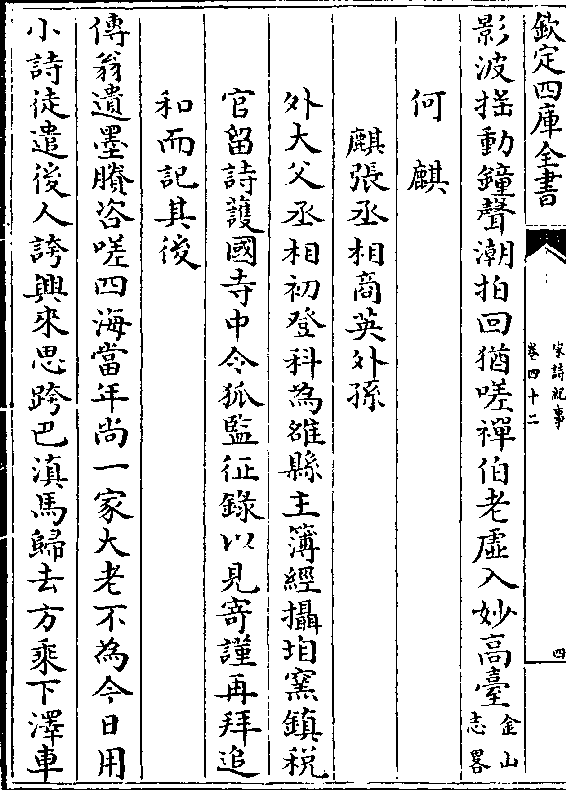 欽定四庫全書
宋詩紀事
卷四十二
四
影波揺動鐘聲潮拍回猶嗟禪伯老虛入妙高臺金山志畧
何麒
麒張丞相商英外孫
外大父丞相初登科為雒縣主簿經攝珀窯鎮稅
官留詩護國寺中令狐監征錄以見寄謹再拜追
和而記其後
傳翁遺墨賸咨嗟四海當年尚一家大老不為今日用
小詩徒遣後人誇興來思跨巴滇馬歸去方乘下澤車